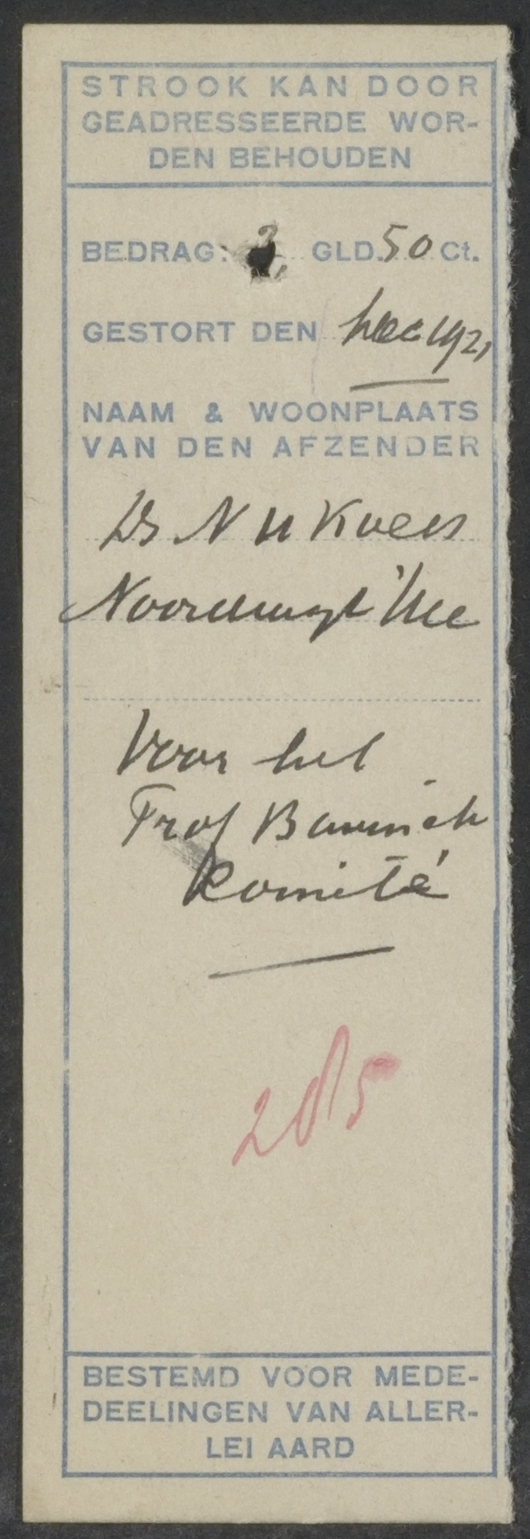 STROOK KAN DOOR
GEADRESSEERDE WOR-
DEN BEHOUDEN
BEDRAG: 2, GLD. 50 Ct.
GESTORT DEN Dec 1921
NAAM & WOONPLAATS
VAN DEN AFZENDER
Ds N H
Voor het
Prof Bavinck
Komité
205
BESTEMD VOOR MEDE-
DEELINGEN VAN ALLER-
LEI AARD